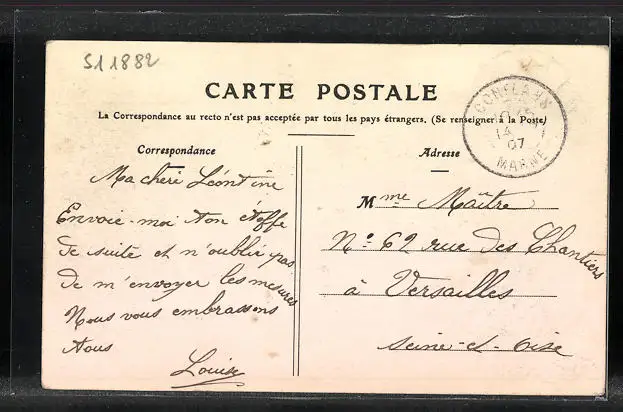 511882
CARTE POSTALE
La Correspondance au recto n'est pas acceptée par tous les pays étrangers. (Se renseigner à la Poste)
Correspondance
Ma cheri Léontine
Envoie-moi ton étoffe
de suite et n'oublir pas
de m'envoyer les mesures
Nous vous embrassons
tous
Louise
Adresse
Mme Maître
No 62 rue des Chantiers
à Versailles
Seine-et-Oise
CONFLANS
14
07
MARNE